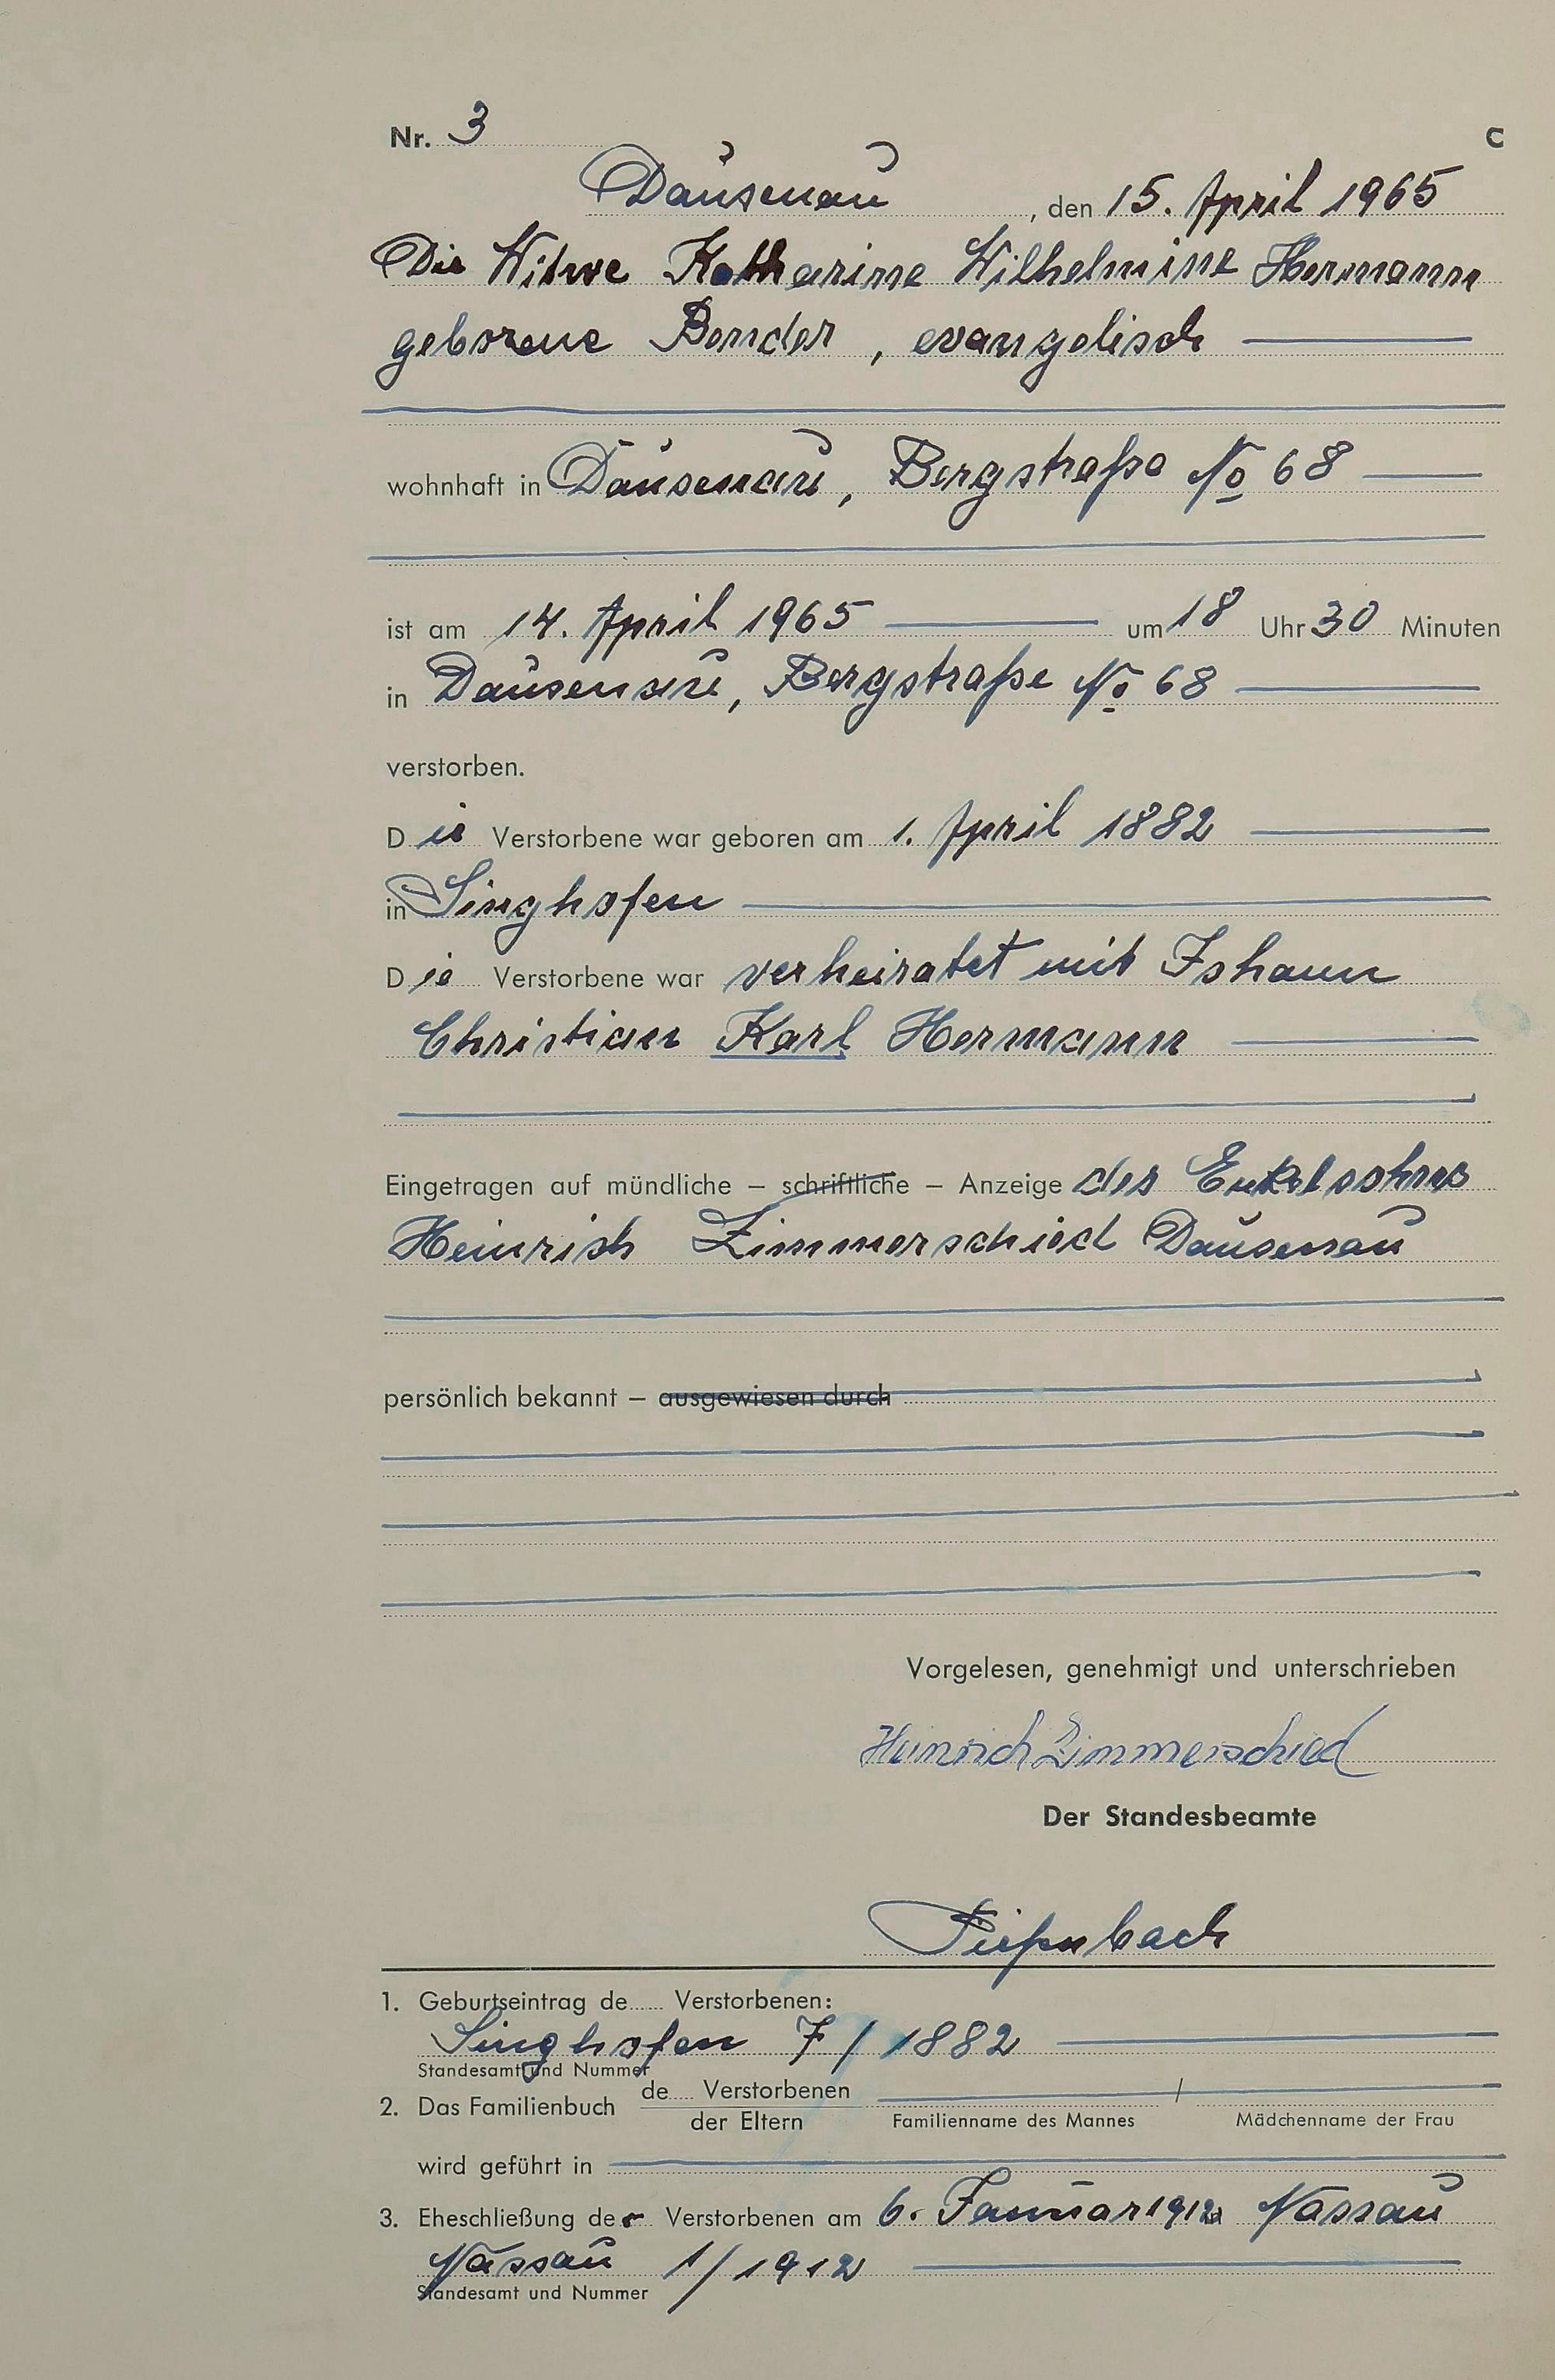 Nr. 3 C
Dausenau, den 15. April 1965
Die Witwe Katharine Wilhelmine Hermann
geborene Bender, evangelisch
wohnhaft in Dausenau, Bergstraße No 68
ist am 14. April 1965 um 18 Uhr 30 Minuten
in Dausenau, Bergstraße No 68
verstorben.
Die Verstorbene war geboren am 1. April 1882
in Singhofen
Die Verstorbene war verheiratet mit Johann
Christian Karl Hermann
Eingetragen auf mündliche – schriftliche – Anzeige des Enkelsohnes
Heinrich Zimmerschied Dausenau
persönlich bekannt – ausgewiesen durch
Vorgelesen, genehmigt und unterschrieben
Heinrich Zimmerschied
Der Standesbeamte
1. Geburtseintrag de Verstorbenen:
Singhofen 7/1882
Standesamt und Nummer
2. Das Familienbuch de Verstorbenen /
der Eltern Familienname des Mannes Mädchenname der Frau
wird geführt in
3. Eheschließung der Verstorbenen am 6. Januar 1912 Nassau
Nassau 1/1912
Standesamt und Nummer